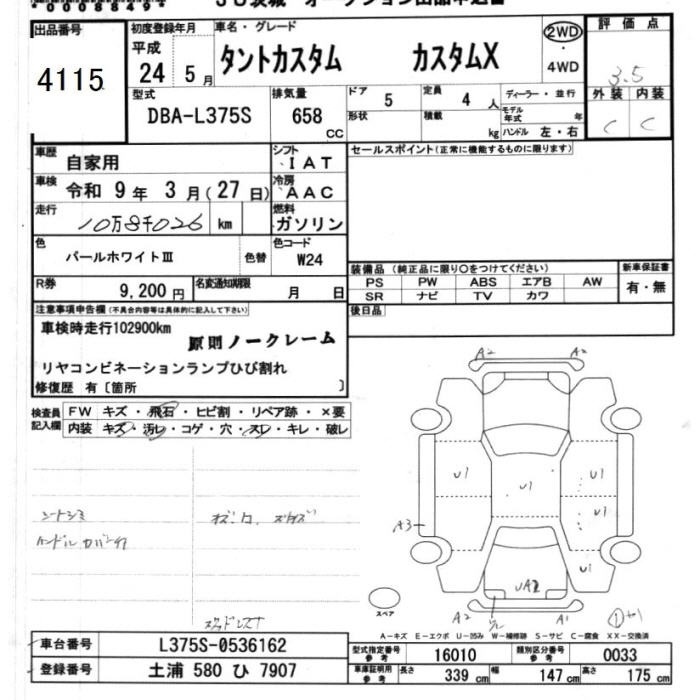 0008849
JU茨城 オークション出品申込書
出品番号
4115
初度登録年月
平成
24 5月
車名・グレード
タントカスタム カスタムX
2WD
・
4WD
評価点
3.5
外装 内装
C C
型式
DBA-L375S
排気量
658
CC
ドア 5
形状
定員 4人
積載 kg
ディーラー・並行
モデル年式 年
ハンドル 左・右
車歴 自家用
シフト
IAT
車検 令和 9年 3月(27日)
冷房
AAC
走行 10万8千026 km
燃料
ガソリン
色 パールホワイトⅢ 色替
色コード
W24
R券 9,200円
名変通知期限
月 日
セールスポイント(正常に機能するものに限ります)
装備品(純正品に限り○をつけてください)
PS PW ABS エアB AW
SR ナビ TV カワ
新車保証書
有・無
後日品
注意事項申告欄(不具合内容等は具体的に記入して下さい)
車検時走行102900km
原則ノークレーム
リヤコンビネーションランプひび割れ
修復歴 有〔箇所 〕
検査員記入欄
FW キズ・飛石・ヒビ割・リペア跡・×要
内装 キズ・汚レ・コゲ・穴・スレ・キレ・破レ
シートシミ
ハンドルカバー付
A2 A2
U1 U1 U1
U1
A3
U1
UA2
A2 A1
スペア
A−キズ E−エクボ U−凹み W−補修跡 S−サビ C−腐食 XX−交換済
車台番号 L375S-0536162
登録番号 土浦 580 ひ 7907
型式指定番号
参考
16010
類別区分番号
参考
0033
車庫証明用
参考
長さ 339 cm
幅 147 cm
高さ 175 cm